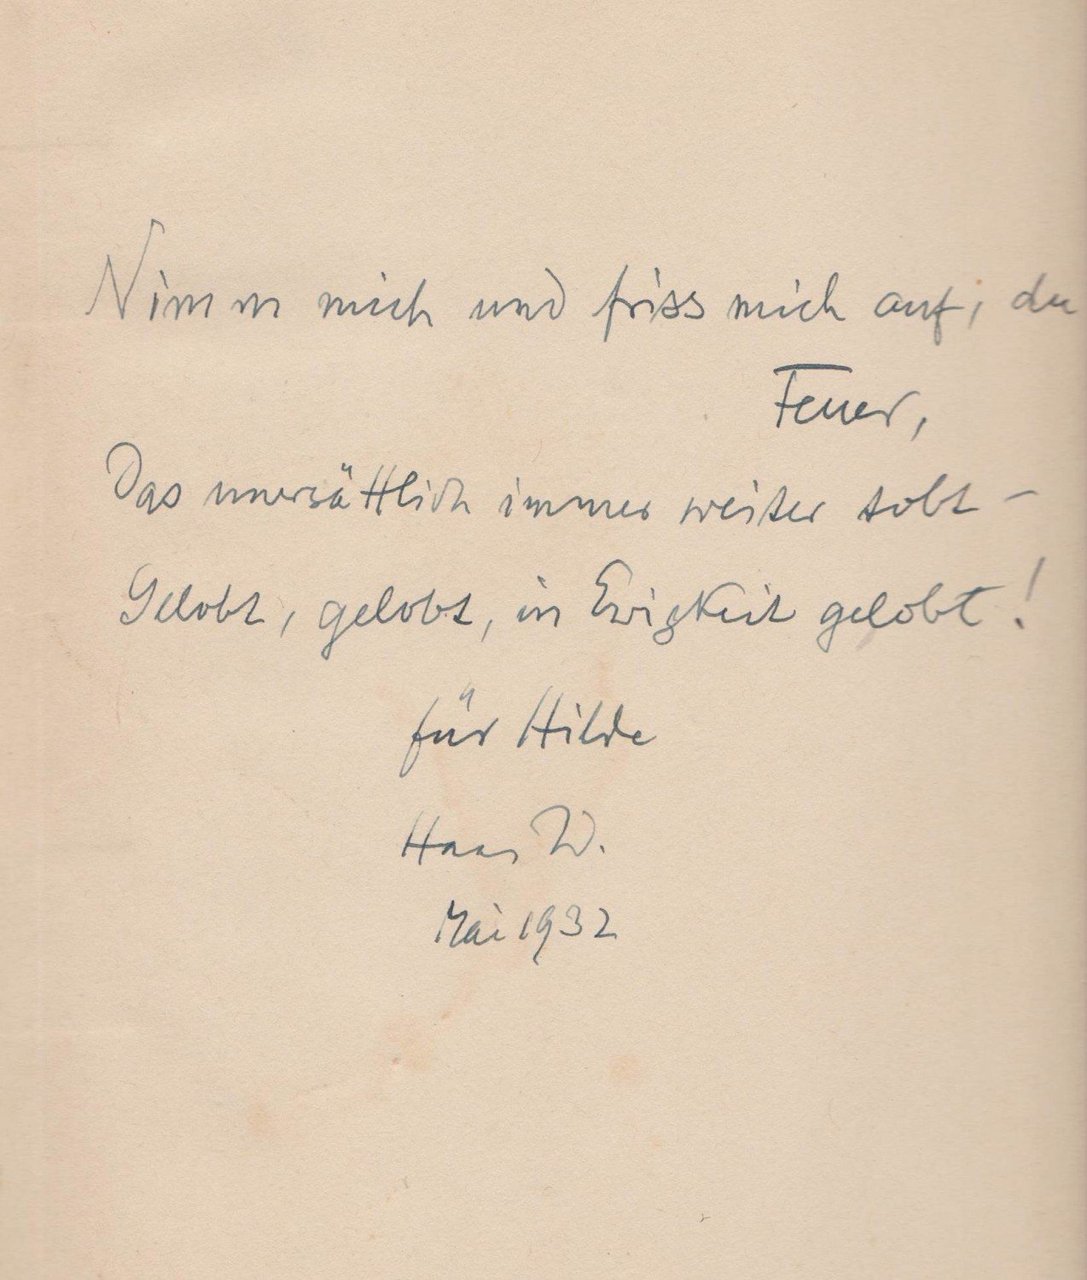 Nimm mich und friss mich auf, du
Feuer,
Das unersättlich immer weiter tobt –
Gelobt, gelobt, in Ewigkeit gelobt!
für Hilde
Hans W.
Mai 1932